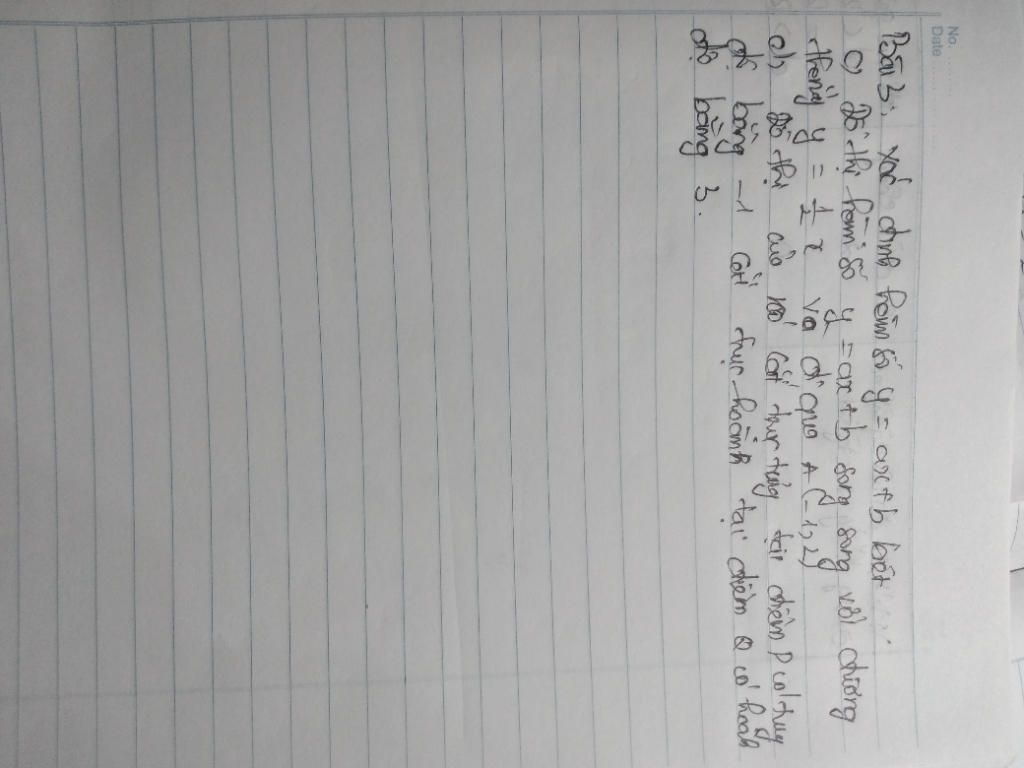 No.
Date
Bài 3: xác định hàm số y = ax + b biết
c) Đồ thị hàm số y = ax + b song song với đường
thẳng y = 1/2 x và đi qua A (-1, 2)
d) Đồ thị của nó cắt trục tung tại điểm P có tung
độ bằng -1 cắt trục hoành tại điểm Q có hoành
độ bằng 3.